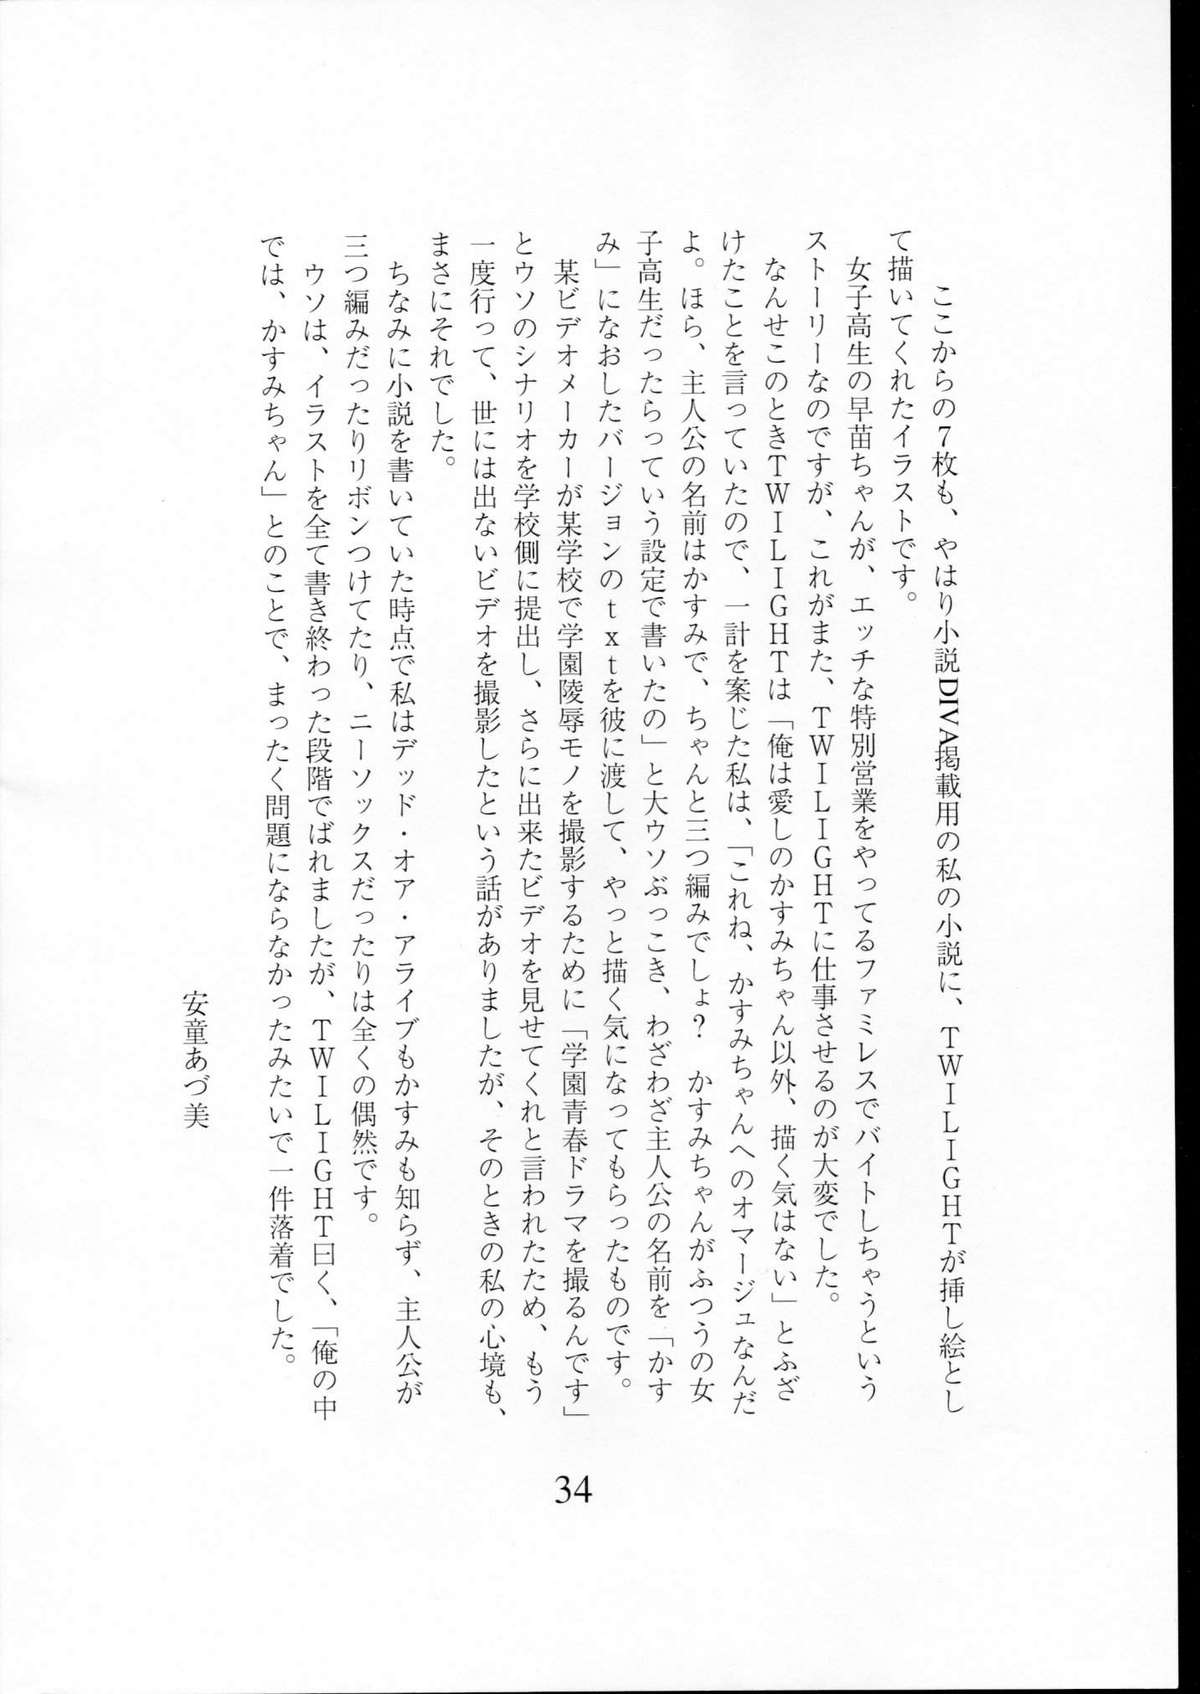 ここからの７枚も、やはり小説DIVA掲載用の私の小説に、ＴＷＩＬＩＧＨＴが挿し絵とし
て描いてくれたイラストです。
　女子高生の早苗ちゃんが、エッチな特別営業をやってるファミレスでバイトしちゃうという
ストーリーなのですが、これがまた、ＴＷＩＬＩＧＨＴに仕事させるのが大変でした。
　なんせこのときＴＷＩＬＩＧＨＴは「俺は愛しのかすみちゃん以外、描く気はない」とふざ
けたことを言っていたので、一計を案じた私は、「これね、かすみちゃんへのオマージュなんだ
よ。ほら、主人公の名前はかすみで、ちゃんと三つ編みでしょ？　かすみちゃんがふつうの女
子高生だったらっていう設定で書いたの」と大ウソぶっこき、わざわざ主人公の名前を「かす
み」になおしたバージョンのｔｘｔを彼に渡して、やっと描く気になってもらったものです。
　某ビデオメーカーが某学校で学園陵辱モノを撮影するために「学園青春ドラマを撮るんです」
とウソのシナリオを学校側に提出し、さらに出来たビデオを見せてくれと言われたため、もう
一度行って、世には出ないビデオを撮影したという話がありましたが、そのときの私の心境も、
まさにそれでした。
　ちなみに小説を書いていた時点で私はデッド・オア・アライブもかすみも知らず、主人公が
三つ編みだったりリボンつけてたり、ニーソックスだったりは全くの偶然です。
　ウソは、イラストを全て書き終わった段階でばれましたが、ＴＷＩＬＩＧＨＴ曰く、「俺の中
では、かすみちゃん」とのことで、まったく問題にならなかったみたいで一件落着でした。
安童あづ美
34